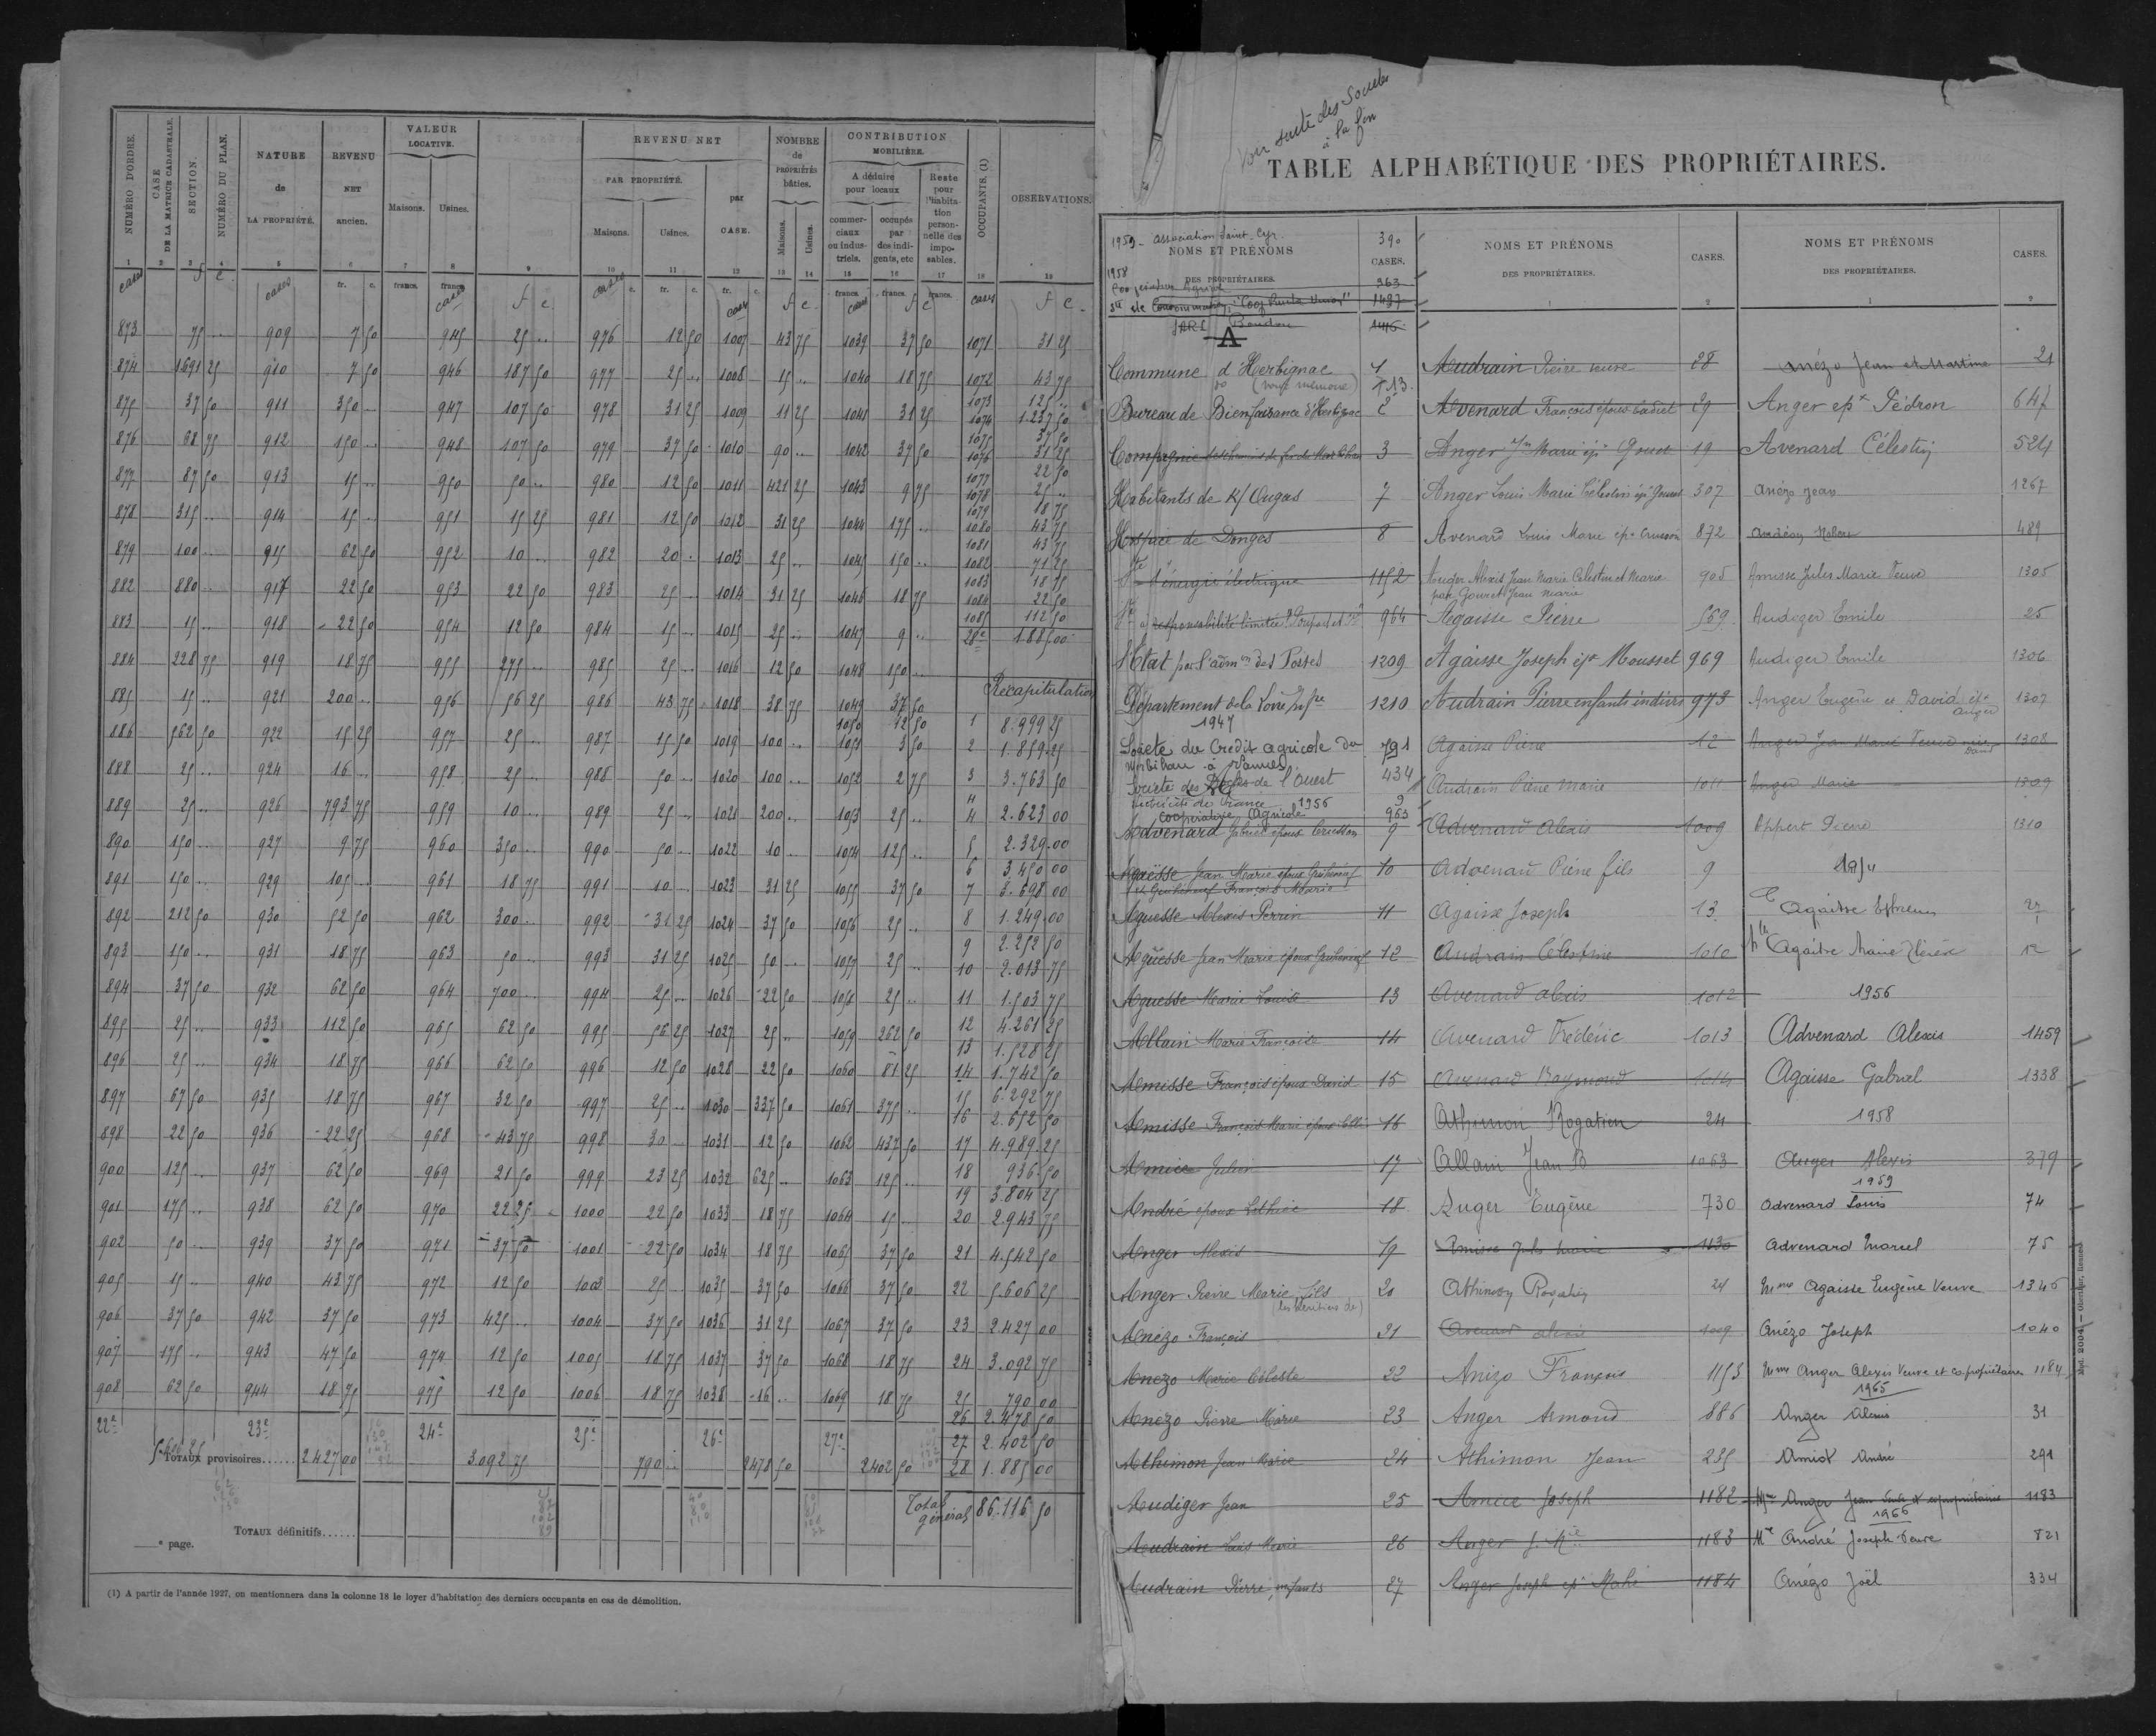 NUMÉRO D'ORDRE.
CASE DE LA MATRICE CADASTRALE.
SECTION.
NUMÉRO DU PLAN.
NATURE de LA PROPRIÉTÉ.
REVENU NET ancien.
VALEUR LOCATIVE.
Maisons. Usines.
REVENU NET
PAR PROPRIÉTÉ.
Maisons. Usines.
par CASE.
NOMBRE de PROPRIÉTÉS bâties.
Maisons. Usines.
CONTRIBUTION MOBILIÈRE.
A déduire pour locaux
commerciaux ou industriels.
occupés par des indigents, etc
Reste pour l'habitation personnelle des imposables.
OCCUPANTS. (1)
OBSERVATIONS.
873 75 .. 909 7 50 945 25 .. 976 12 50 1007 43 75 1039 37 50 1071 31 25
874 1691 25 910 7 50 946 187 50 977 25 .. 1008 15 .. 1040 18 75 1072 43 75
1073 12 50
875 37 50 911 350 .. 947 107 50 978 31 25 1009 11 25 1041 31 25 1074 1.237 50
1075 37 50
876 68 75 912 150 .. 948 107 50 979 37 50 1010 90 .. 1042 37 50 1076 31 25
1077 22 50
877 67 50 913 15 .. 950 50 .. 980 12 50 1011 421 25 1043 9 75 1078 25 ..
1079 18 75
878 315 .. 914 15 .. 951 15 25 981 12 50 1012 31 25 1044 175 .. 1080 43 75
1081 43 75
879 100 .. 915 62 50 952 10 .. 982 20 . 1013 25 .. 1045 150 .. 1082 71 25
1083 18 75
882 880 .. 917 22 50 953 22 50 983 25 .. 1014 31 25 1046 18 75 1084 22 50
1085 112 50
883 15 .. 918 22 50 954 12 50 984 15 .. 1015 25 .. 1047 9 .. 28e 1.885 00
884 228 75 919 18 75 955 275 .. 985 25 .. 1016 12 50 1048 150 ..
Récapitulation
885 15 .. 921 200 .. 956 56 25 986 43 75 1018 38 75 1049 37 50
1050 12 50 1 8.999 25
886 562 50 922 15 25 957 25 .. 987 15 50 1019 100 .. 1051 3 50 2 1.859 25
888 25 .. 924 16 .. 958 25 .. 988 50 .. 1020 100 .. 1052 2 75 3 3.763 50
889 25 .. 926 793 75 959 10 .. 989 25 .. 1021 200 .. 1053 25 .. 4 2.623 00
890 150 .. 927 9 75 960 350 .. 990 50 .. 1022 10 .. 1054 125 .. 5 2.329.00
6 3.450 00
891 150 .. 929 105 .. 961 18 75 991 10 .. 1023 31 25 1055 37 50 7 3.698 00
892 212 50 930 52 50 962 300 .. 992 31 25 1024 37 50 1056 25 .. 8 1.249.00
9 2.252 50
893 150 .. 931 18 75 963 50 .. 993 31 25 1025 50 .. 1057 25 .. 10 2.013 75
894 37 50 932 62 50 964 700 .. 994 25 .. 1026 22 50 1058 25 .. 11 1.503 75
895 25 .. 933 112 50 965 62 50 995 56 25 1027 25 .. 1059 262 50 12 4.261 25
13 1.528 25
896 25 .. 934 18 75 966 62 50 996 12 50 1028 22 50 1060 81 25 14 1.742 50
15 6.292 75
897 67 50 935 18 75 967 32 50 997 25 .. 1030 337 50 1061 375 .. 16 2.652 50
898 22 50 936 22 25 968 43 75 998 30 1031 12 50 1062 437 50 17 4.989.25
900 125 .. 937 62 50 969 21 50 999 23 25 1032 625 .. 1063 125 .. 18 936 50
19 3.804 25
901 175 .. 938 62 50 970 22 25 1000 22 50 1033 18 75 1064 15 .. 20 2.943 75
902 50 .. 939 37 50 971 37 50 1001 22 50 1034 18 75 1065 37 50 21 4.542 50
905 15 .. 940 43 75 972 12 50 1003 25 .. 1035 37 50 1066 37 50 22 5.606 25
906 37 50 942 37 50 973 425 .. 1004 37 50 1036 31 25 1067 37 50 23 2.427 00
907 175 .. 943 47 50 974 12 50 1005 18 75 1037 37 50 1068 18 75 24 3.092 75
908 62 50 944 18 75 975 12 50 1006 18 75 1038 16 .. 1069 18 75 25 790 00
26 2.478 50
22e 23e 24e 25e 26e 27e 27 2.402 50
TOTAUX provisoires...... 5.606 25 2427 00 3.092 75 790 .. 2478 50 2402 50 28 1.885 00
Total général 86.116 50
TOTAUX définitifs......
e page.
(1) A partir de l'année 1927, on mentionnera dans la colonne 18 le loyer d'habitation des derniers occupants en cas de démolition.
Voir suite des Sociétés à la fin
TABLE ALPHABÉTIQUE DES PROPRIÉTAIRES.
1959 - Association Saint-Cyr 390
NOMS ET PRÉNOMS DES PROPRIÉTAIRES. CASES.
NOMS ET PRÉNOMS DES PROPRIÉTAIRES. CASES.
NOMS ET PRÉNOMS DES PROPRIÉTAIRES. CASES.
1958
963
1487
A
Commune d'Herbignac 4
Bureau de Bienfaisance d'Herbignac 2
3
Habitants de K/Ougas 7
Hospice de Donges 8
d'énergie électrique 1152
à responsabilité limitée 964
l'Etat par l'admon des Postes 1209
Département de la Loire Infre 1210
1947
Société du Crédit agricole du Morbihan à Vannes 791
Société des de l'Ouest 434
Electricité de France 1956 9
Coopérative Agricole 963
Advenard Gabriel époux Crusson 9
Agaësse Jean Marie époux 10
Aguesse Alexis Perrin 11
Aguësse Jean Marie époux 12
Aguesse Marie Louise 13
Allain Marie Françoise 14
Amisse François époux David 15
Amisse François Marie époux 16
Amice Julien 17
André époux 18
Anger Alexis 19
Anger Pierre Marie fils 20
(les héritiers de)
Anézo François 21
Anezo Marie Céleste 22
Anézo Pierre Marie 23
Athimon Jean Marie 24
Audiger Jean 25
Audrain Louis Marie 26
Audrain Pierre, enfants 27
Audrain Pierre veuve 28
Avenard François époux Cadiet 29
Anger Jn Marie épx Gouret 19
Anger Louis Marie Célestin épx Gouret 307
Avenard Louis Marie épx Crusson 872
Auger Alexis Jean Marie Célestin et Marie 905
par Gouret Jean Marie
Agaisse Pierre 559
Agaisse Joseph épx Mousset 969
Audrain Pierre enfants indivis 973
Agaisse Pierre 12
Audrain Pierre Marie 1011
Advenard Alexis 1009
Advenard Pierre fils 9
Agaisse Joseph 13
Audrain Célestine 1010
Avenard Alexis 1012
Avenard Frédéric 1013
Avenard Raymond 1014
Athimon Rogatien 24
Allain Jean B 1063
Auger Eugène 730
Amisse Jules Marie 1130
Athimon Rogatien 24
Avenard Alexis 1009
Anizo François 1153
Anger Armand 886
Athimon Jean 235
Amice Joseph 1182
Anger J. Mie 1183
Anger Joseph épx Mahé 1184
Anézo Jean et Martine 21
Anger epx Pédron 647
Avenard Célestin 524
Anézo Jean 1267
489
Amisse Jules Marie Veuve 1305
Audiger Emile 25
Audiger Emile 1306
Anger Eugène et David épx Anger 1307
Anger Jean Marie Veuve née David 1308
Anger Marie 1309
Appert Pierre 1310
Agaisse
Agaisse Marie Thérèse 12
1956
Advenard Alexis 1459
Agaisse Gabriel 1338
1958
Auger Alexis 379
1959
Advenard Louis 74
Advenard Marcel 75
Mme Agaisse Eugène Veuve 1346
Anézo Joseph 1040
Mme Anger Alexis Veuve et copropriétaires 1184
1965
Anger Alexis 31
André 291
Mme Anger Jean Veuve et copropriétaires 1183
1966
Me André Joseph Veuve 821
Anézo Joël 334
Mod. 2004. — Oberthur, Rennes